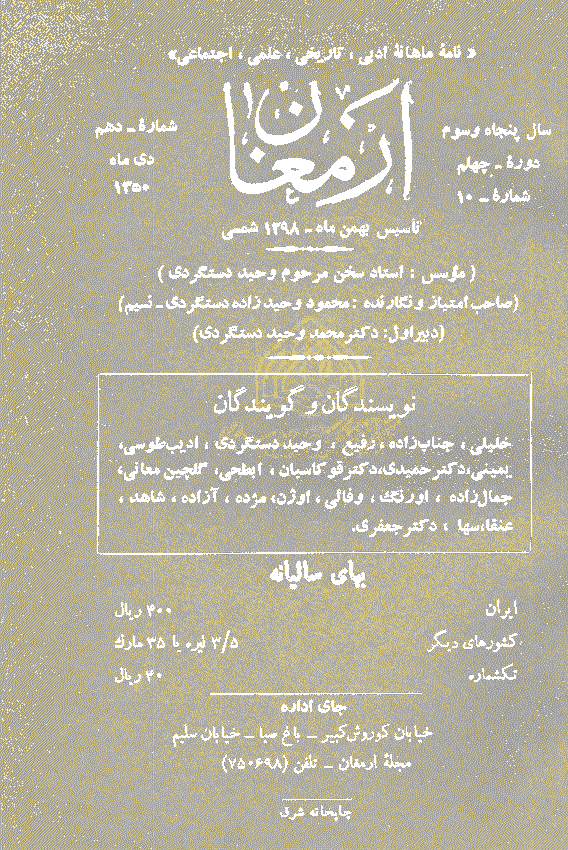 « نامهٔ ماهانهٔ ادبی ، تاریخی ، علمی ، اجتماعی»
ارمغان
سال پنجاه وسوم
دورهٔ ـ چهلم
شمارهٔ ـ ۱۰
شمارهٔ ـ دهم
دی ماه
۱۳۵۰
تأسیس بهمن ماه ـ ۱۲۹۸ شمسی
( مؤسس : استاد سخن مرحوم وحید دستگردی )
(صاحب امتیاز و نگارنده : محمود وحید زاده دستگردی ـ نسیم)
(دبیر اول: دکتر محمد وحید دستگردی)
نویسندگان و گویندگان
خلیلی ، جناب‌زاده ، رفیع ، وحید دستگردی ، ادیب طوسی،
یمینی،دکتر حمیدی،دکتر قوکاسیان ، ابطحی، گلچین معانی،
جمال‌زاده ، اورنگ ، وفائی ، اوژن، مژده ، آزاده ، شاهد ،
عنقا،سها ، دکتر جعفری.
بهای سالیانه
ایران ۴۰۰ ریال
کشورهای دیگر ۳/۵ لیره یا ۳۵ مارک
تکشماره ۴۰ ریال
جای اداره
خیابان کوروش کبیر ـ باغ صبا ـ خیابان سلیم
مجلهٔ ارمغان ـ تلفن (۷۵۰۶۹۸)
چاپخانه شرق